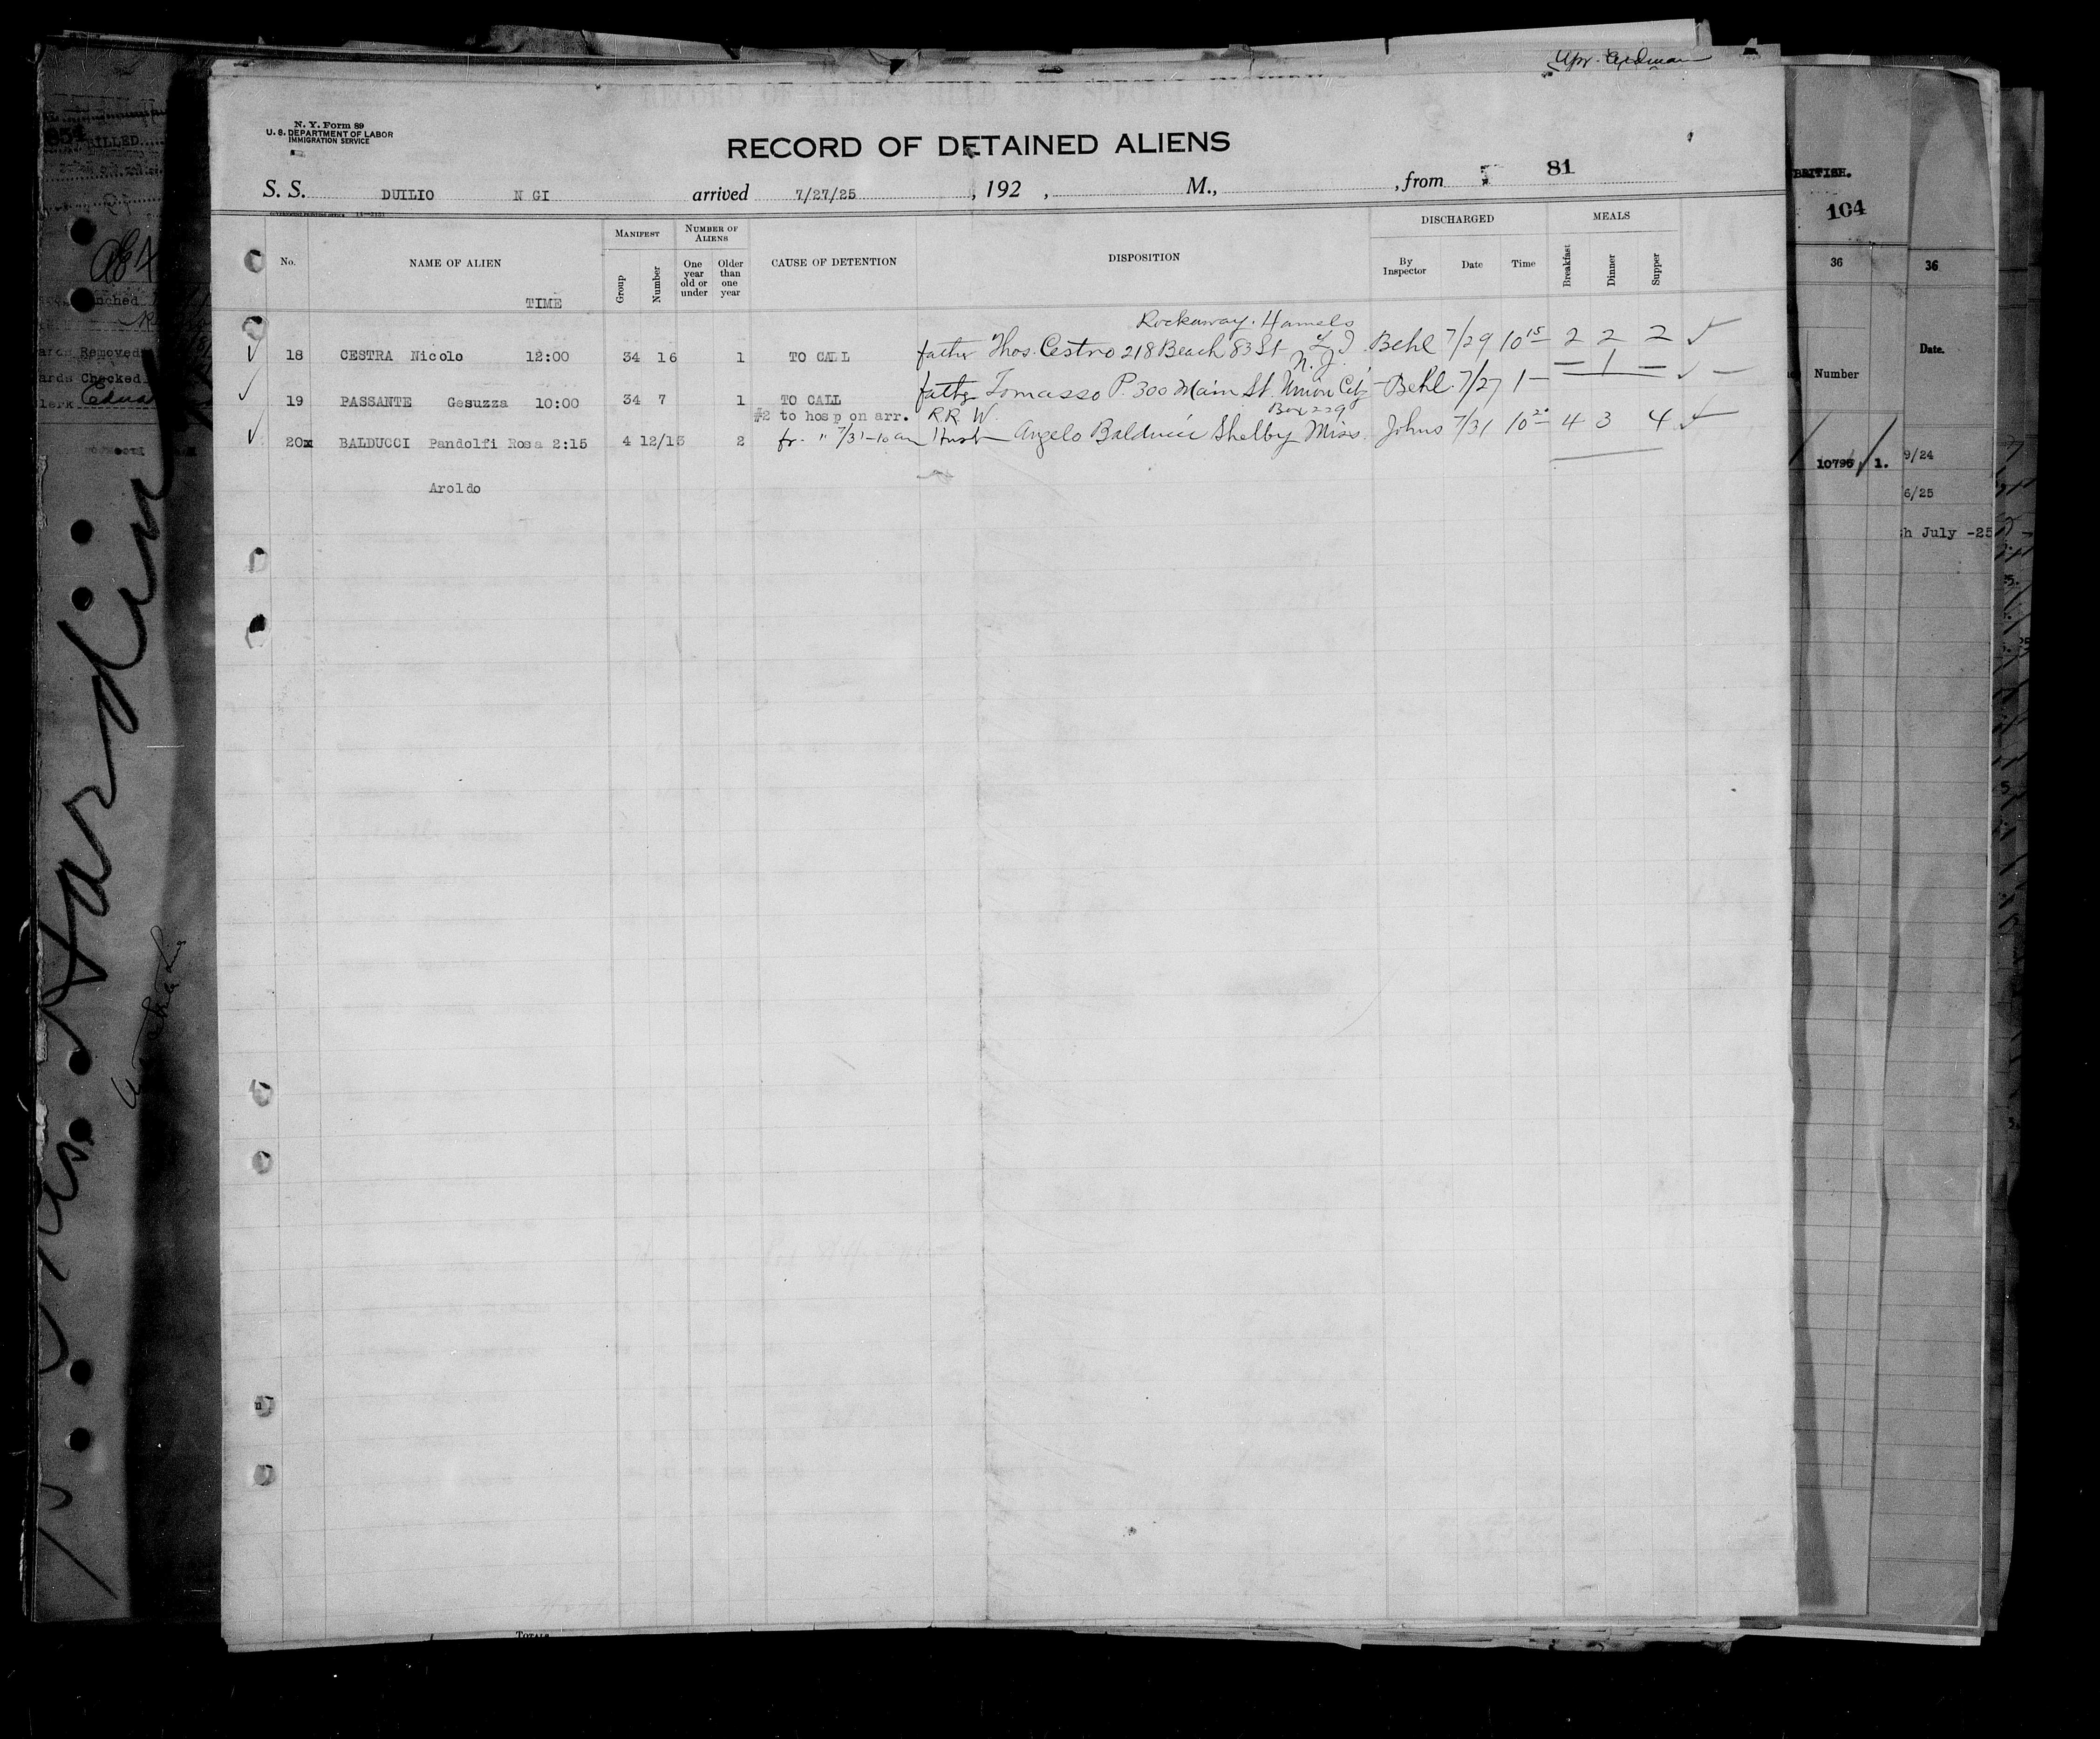 N. Y. Form 89
U. S. DEPARTMENT OF LABOR
IMMIGRATION SERVICE
RECORD OF DETAINED ALIENS
81
S. S. DUILIO N GI arrived 7/27/25, 192 , M., , from
No. NAME OF ALIEN TIME MANIFEST Group Number NUMBER OF ALIENS One year old or under Older than one year CAUSE OF DETENTION DISPOSITION DISCHARGED By Inspector Date Time MEALS Breakfast Dinner Supper
Rockaway. Hamels
18 CESTRA Nicolo 12:00 34 16 1 TO CALL father Thos. Cestro 218 Beach 83 St L I Behl 7/29 10 15 2 2 2
N. J.
19 PASSANTE Gesuzza 10:00 34 7 1 TO CALL father Tomasso P. 300 Main St. Union City Behl 7/27 1 — — 1 —
#2 to hosp on arr. R.R. W. Box 229
20x BALDUCCI Pandolfi Rosa 2:15 4 12/13 2 fr. " 7/31-10am Husb Angelo Balducci Shelby Miss. Johns 7/31 10 20 4 3 4
Aroldo
TOTALS
BILLED
Removed
Checked
Hardin
BRITISH.
104
36
36
Number
Date.
10795 1.
9/24
6/25
h July -25